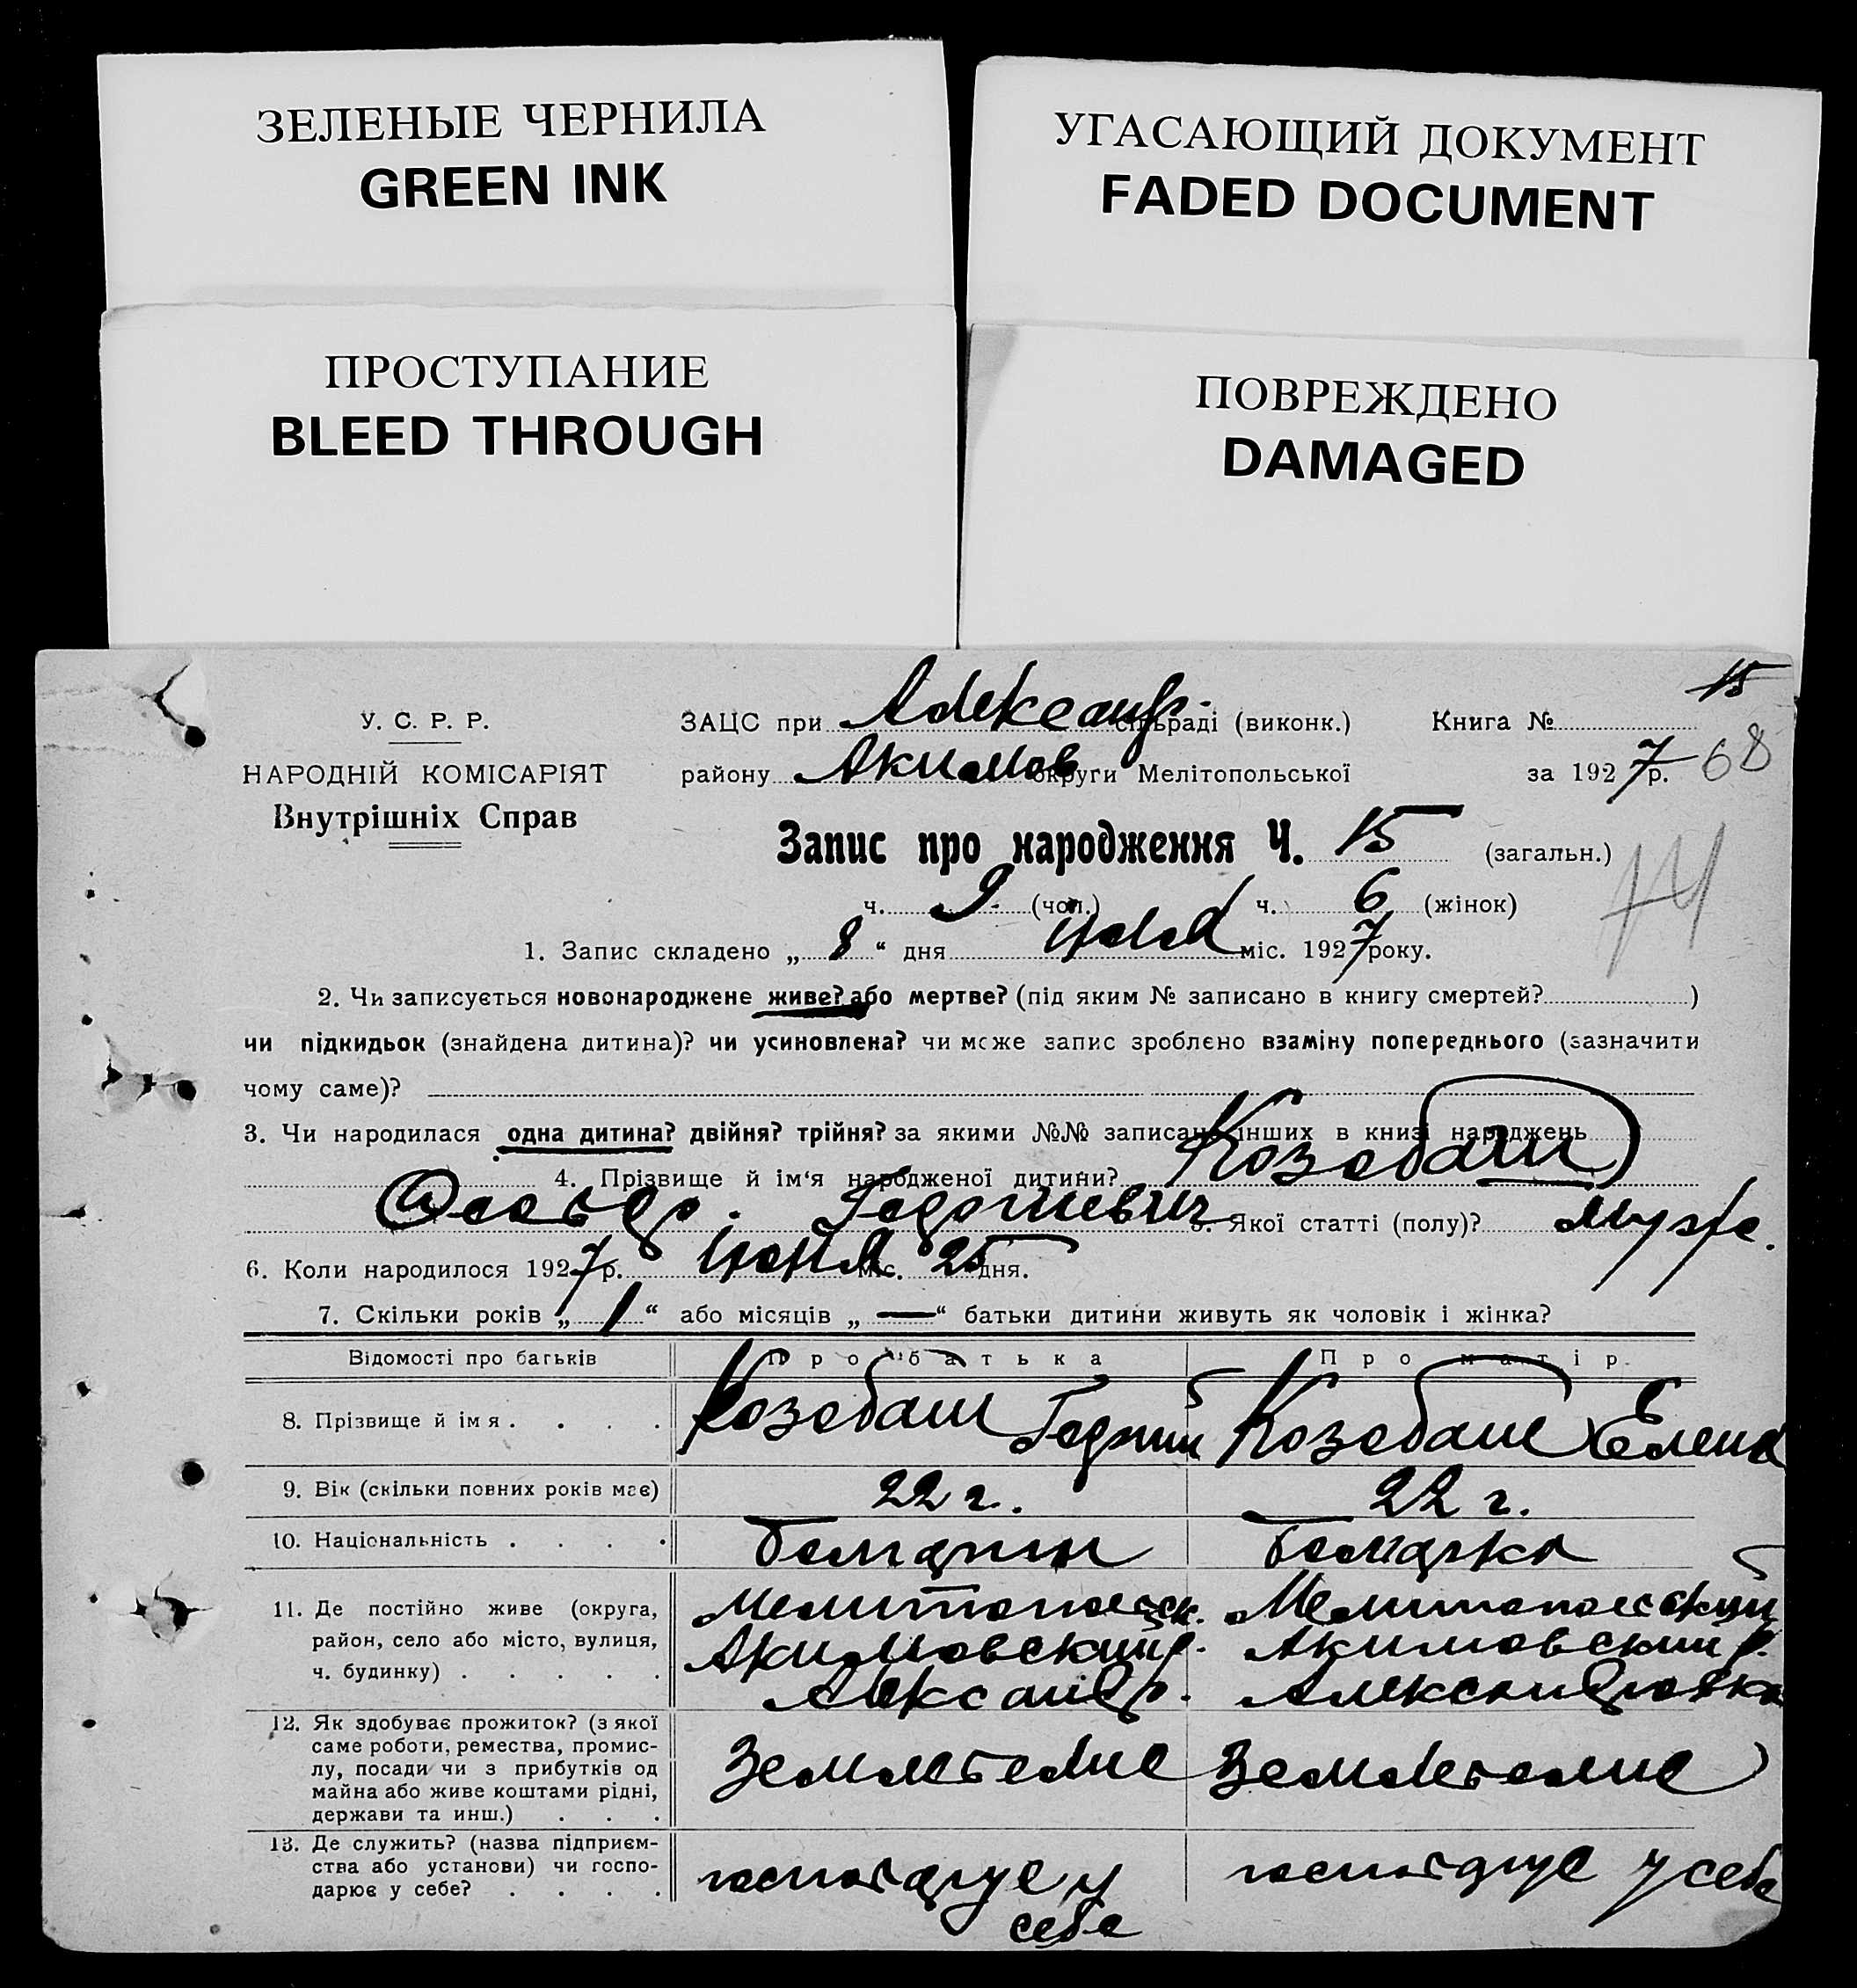 ЗЕЛЕНЫЕ ЧЕРНИЛА
GREEN INK
УГАСАЮЩИЙ ДОКУМЕНТ
FADED DOCUMENT
ПРОСТУПАНИЕ
BLEED THROUGH
ПОВРЕЖДЕНО
DAMAGED
15
У. С. Р. Р.
НАРОДНІЙ КОМІСАРІЯТ
Внутрішніх Справ
ЗАЦС при Александр. сільраді (виконк.) Книга №
району Акимов округи Мелітопольської за 1927 р. 68
Запис про народження Ч. 15 (загальн.)
74
ч. 9 (чол.) ч. 6 (жінок)
1. Запис складено „ 8 “ дня июля міс. 1927 року.
2. Чи записується новонароджене живе? або мертве? (під яким № записано в книгу смертей? )
чи підкидьок (знайдена дитина)? чи усиновлена? чи може запис зроблено взаміну попереднього (зазначити
чому саме)?
3. Чи народилася одна дитина? двійня? трійня? за якими №№ записано інших в книзі народжень
4. Прізвище й ім‘я народженої дитини? Козобаш
5. Якої статті (полу)? муж.
6. Коли народилося 1927 р. июня міс. 25 дня.
7. Скільки років „ 1 “ або місяців „ — “ батьки дитини живуть як чоловік і жінка?
Відомості про батьків Про батька Про матір.
8. Прізвище й імя . . . . Козобаш Козобаш Елена
9. Вік (скільки повних років має) 22 г. 22 г.
10. Національність . . . . Болгарин Болгарка
11. Де постійно живе (округа,
район, село або місто, вулиця,
ч. будинку) . . . . .
Мелитопольск. Мелитопольский
Акимовский р. Акимовский р.
Александр. Александровка
12. Як здобуває прожиток? (з якої
саме роботи, ремества, промис-
лу, посади чи з прибутків од
майна або живе коштами рідні,
держави та инш.) . . .
Земледелие Земледелие
13. Де служить? (назва підприєм-
ства або установи) чи госпо-
дарює у себе? . . . .
господарує у себе господарує у себе